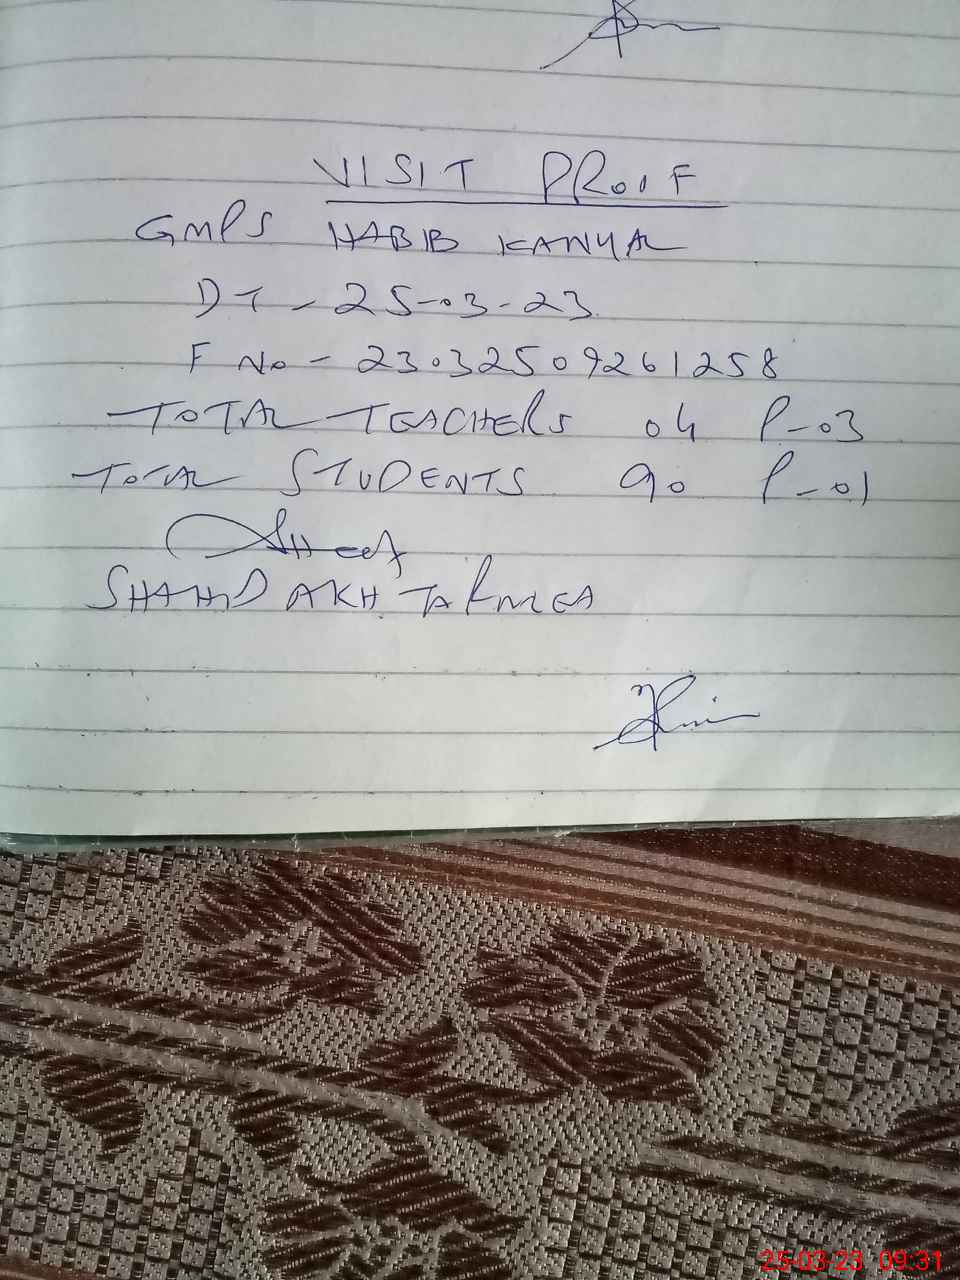 VISIT PROOF
GMPS HABIB KANYAL
DT - 25-03-23
F No - 23032509261258
TOTAL TEACHERS 04 P-03
TOTAL STUDENTS 90 P-01
SHAHID AKHTAR MEA
25-03-23 09:31